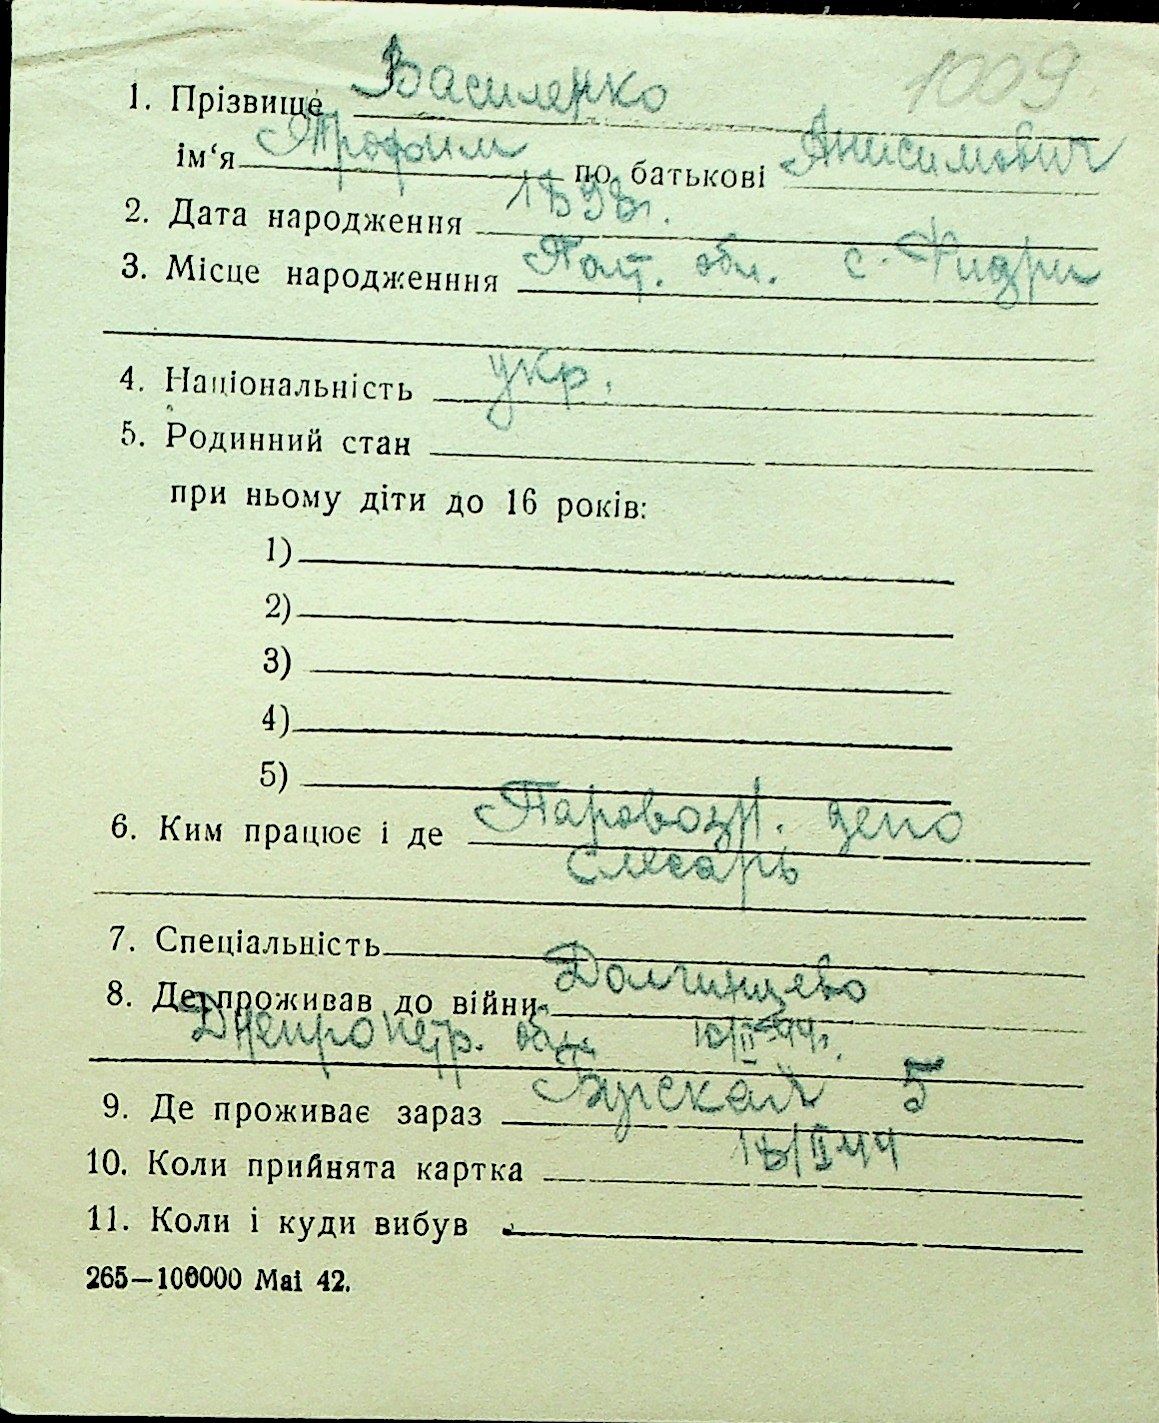 1009
1. Прізвище Василенко
ім‘я Трофим по батькові Анисимович
2. Дата народження 1898г.
3. Місце народженння Полт. обл. с.
4. Національність укр.
5. Родинний стан
при ньому діти до 16 років:
1)
2)
3)
4)
5)
6. Ким працює і де Паровозн. депо
Слесарь
7. Спеціальність
8. Де проживав до війни Долгинцево
Днепропетр. обл.
9. Де проживає зараз 5
10. Коли прийнята картка 18/II 44
11. Коли і куди вибув
265—100000 Mai 42.